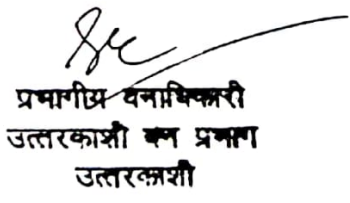 प्रभागीय वनाधिकारी
उत्तरकाशी वन प्रभाग
उत्तरकाशी